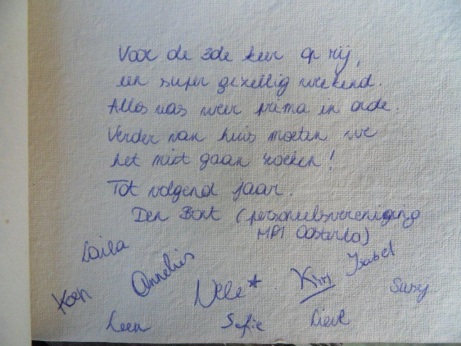 Voor de 3de keer op rij,
een super gezellig weekend.
Alles was weer prima in orde.
Verder van huis moeten we
het niet gaan zoeken!
Tot volgend jaar.
Den Bant (personeelsvereniging
MPI Oosterlo)
Laila
Koen Annelies Nele* Kim Isabel
Suzy
Leen Sofie Lieve